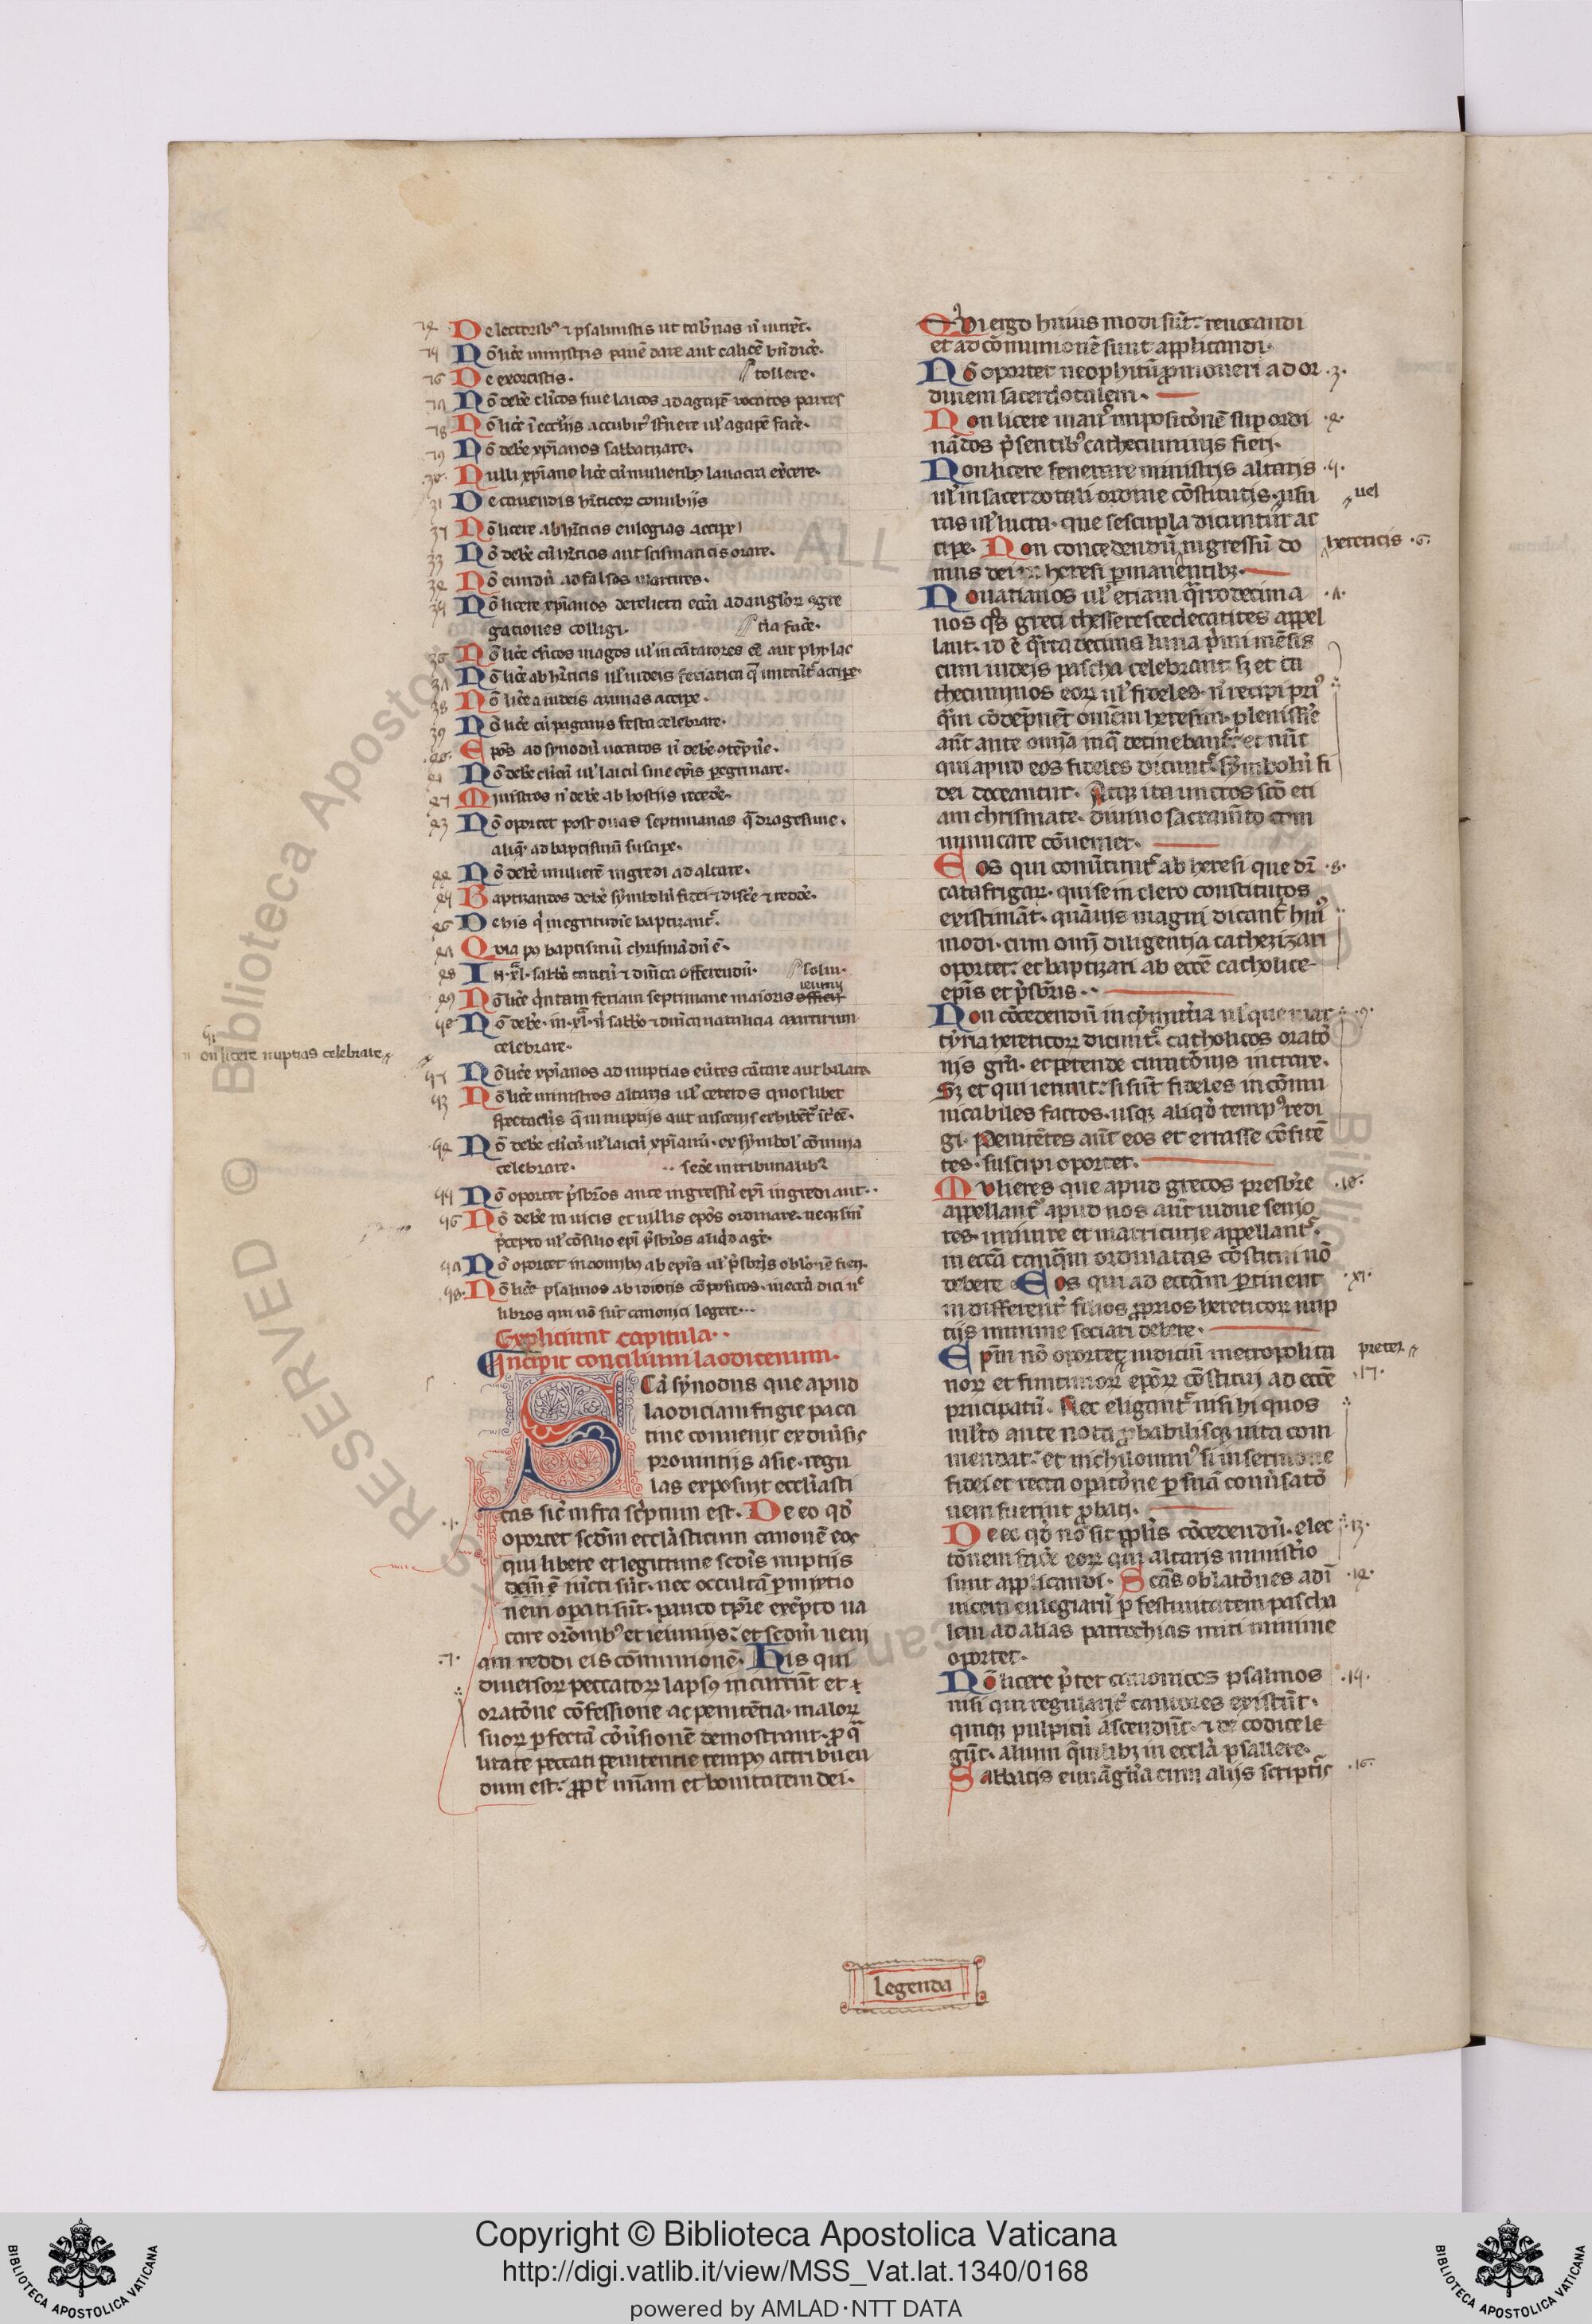 De lectorib⁹ ⁊ psalmistis ut tab̄nas n̄ intrēt.
Nō licē ministris panē dare aut calicē bn̄dicē.
De exorcistis. tollere.
Nō debē cl̄icos siue laicos ad agapē uocatos partes
Nō licē ī eccl̄iis accubit⁹ st̄nere ul̓ agapē facē.
Nō debē xp̄ianos sabbatizare.
Nulli xp̄iano licē cū mulierib⁹ lauacra ex̄cere.
De cauendis h̄eticor conubiis
Nō licere ab h̄eticis eulogias accipe
Nō debē cū h̄eticis aut scismaticis orare.
Nō eundū ad falsos martires.
Nō licere xp̄ianos derelicta ecc̄a ad anglor ꝯgre
gationes colligi. ria facē.
Nō licē cl̄icos magos ul̓ incātatores eē aut phylac
Nō licē ab h̄eticis ul̓ iudeis feriatica q̄ mittūt̄ accipe.
Nō licē a iudeis azimas accipe.
Nō licē cū paganis festa celebrare.
Epō̄s ad synodū uocatos n̄ debē ꝯtēpn̄e.
Nō debē cl̄icū ul̓ laicū sine ep̄is pegrinare.
Ministros n̄ debē ab hostiis recedē.
Nō oportet post duas septimanas q̄dragesime.
aliq̄. ad baptismū suscipe.
Nō debē mulierē ingredi ad altare.
Baptizandos debē symbolū fidei ⁊ discē ⁊ reddē.
De his q̄ in egritudīe baptizant̄.
Quia pꝰ baptismū chrismādū ē.
In .xl. sabbō tantū ⁊ dn̄ica offerendū. solui.
ieiunij
Nō licē q̄ntam feriam septimane maioris officij
Nō debē. in .xl. n̄ sabbō ⁊ dn̄ica natalicia martirum
celebrare.
non licere nuptias celebrare
Nō licē xp̄ianos ad nuptias eūtes cātare aut balare.
Nō licē ministros altaris ul̓ ceteros quoslibet
spectaculis q̄ in nuptiis aut in scenis exhibēt̄ īt̄ēē.
Nō debē cl̄icū ul̓ laicū xp̄ianū. ex symbol̓ cōuiuia
celebrare. sedē in tribunalib⁹
Nō oportet p̄sbr̄os ante ingressū ep̄i ingredi aut..
Nō debē in uicis et uillis ep̄os ordinare. neq̄ sine
p̄cepto ul̓ cōsilio ep̄i p̄sbr̄os aliq̄d agē.
Nō oportet in domib⁹ ab ep̄is ul̓ p̄sbr̄is oblōnē fieri.
Nō licē psalmos ab idiotis cōpositos. in ecc̄a dici n̄c
libros qui nō sūt canonici legere...
Expliciunt capitula..
Incipit concilium laodicenum.
SCā synodus que apud
laodiciam frigie paca
tine conuenit ex diūsis
prouintiis asie. regu
las exposuit eccl̄iasti
cas sic̄ infra sc̄ptum est. De eo qd̄
oportet scd̄m eccl̄asticum canonē eos
qui libere et legitime scd̄is nuptiis
iūcti sūt. nec occultā pmixtio
nem opati sūt. pauco tp̄re exēpto ua
care orōnib⁹ et ieiuniis: et scd̄m ueni
am reddi eis cōmunionē. His qui
diuersor peccator lapsꝰ incurrūt et ī
oratōne cōfessione ac penitētia. malor
suor pfectā cōūsionē demostrant. ꝓ q̄
litate peccati penitentie tempꝰ attribuen
dum est: ꝓpt̄ mīam et bonitatem dei.
Qui ergo huius modi sūt: reuocandi
et ad cōmunionē sunt applicandi.
Nō oportet neophitū ꝓmoueri ad or .3.
dinem sacerdotalem.
Non licere man⁹ impositōnē sup ordi
nādos p̄sentib⁹ cathecuminis fieri.
Non licere fenerare ministris altaris
ul̓ in sacerdotali ordine cōstitutis. usu uel
ras ul̓ lucra. que sescupla dicuntur ac
cipe. Non concedendū ingressū do hereticis .6.
mus dei in heresi pmanentib⁹.
Nouatianos ul̓ etiam q̄rtodecima
nos q̄s greci thesserescedecatites appel
lant. id ē q̄rta decima luna p̄mi mēsis
cum iudeis pascha celebrant. sꝫ et ca
thecuminos eor ul̓ fideles. n̄ recipi pri⁹
q̄m cōdēpnēt omēm heresim. plenissīe
aūt ante omīa in q̄ detinebant̄: et nūc
qui apud eos fideles dicunt̄. symbolū fi
dei doceantur. Atqꝫ ita unctos scō eti
am chrismate. diuino sacram̄to com
municare cōueniet.
Eos qui conūtunt̄ ab heresi que dr̄ .8.
catafrigar. qui se in clero constitutos
existimāt. quāuis magni dicant̄ hui⁹
modi. cum omī diligentia cathezizari
oportet: et baptizari ab ecc̄e catholice
ep̄is et p̄sbr̄is..
Non cōcedendū in cymit̄ia ul̓ que mar .9.
tyria hereticor dicunt̄. catholicos oratō
nis grā. et petende curatōnis intrare.
Sꝫ et qui ierint: si sūt fideles in cōmu
nicabiles factos. usqꝫ aliq̄d temp⁹ redi
gi. Penitētes aūt eos et errasse cōfitē
tes. suscipi oportet.
Mulieres que apud grecos presbr̄e
appellant̄ apud nos aūt uidue senio
res. uniuire et matricurie appellant̄.
in ecc̄a tanq̄m ordinatas cōstitui nō
debere. Eos qui ad ecc̄am ptinent .xi.
indifferent̄ filios ꝓprios hereticor nup
tiis minime sociari debere.
Ep̄m nō oportet iudiciū metropolita preter
nor et finitimor ep̄or cōstitui ad ecc̄e
principatū. Nec eligant̄ nisi hi quos
mlt̄o ante nota ꝓbabilisqꝫ uita com
mendat: et nichilomin⁹ si in sermone
fidei et recta opatōne p suā conūsatō
nem fuerint ꝓbati.
De eo qd̄ nō sit ppl̄is cōcedendū. elec .13.
tōnem facē eor qui altaris minist̄io
sunt applicandi. Scās oblatōnes ad ī
uicem eulogiarū p festiuitatem pascha
lem ad alias parrochias miti minime
oportet.
Nō licere p̄ter canonicos psalmos
nisi qui regulariē cantores existūt.
quiqꝫ pulpitū ascendūt. ⁊ de codice le
gūt. alium q̄mlibꝫ in eccl̄a psallere.
Sabbatis euuāgl̄ia cum aliis scriptis .16.
legenda
Copyright © Biblioteca Apostolica Vaticana
http://digi.vatlib.it/view/MSS_Vat.lat.1340/0168
powered by AMLAD·NTT DATA
BIBLIOTECA APOSTOLICA VATICANA
BIBLIOTECA APOSTOLICA VATICANA